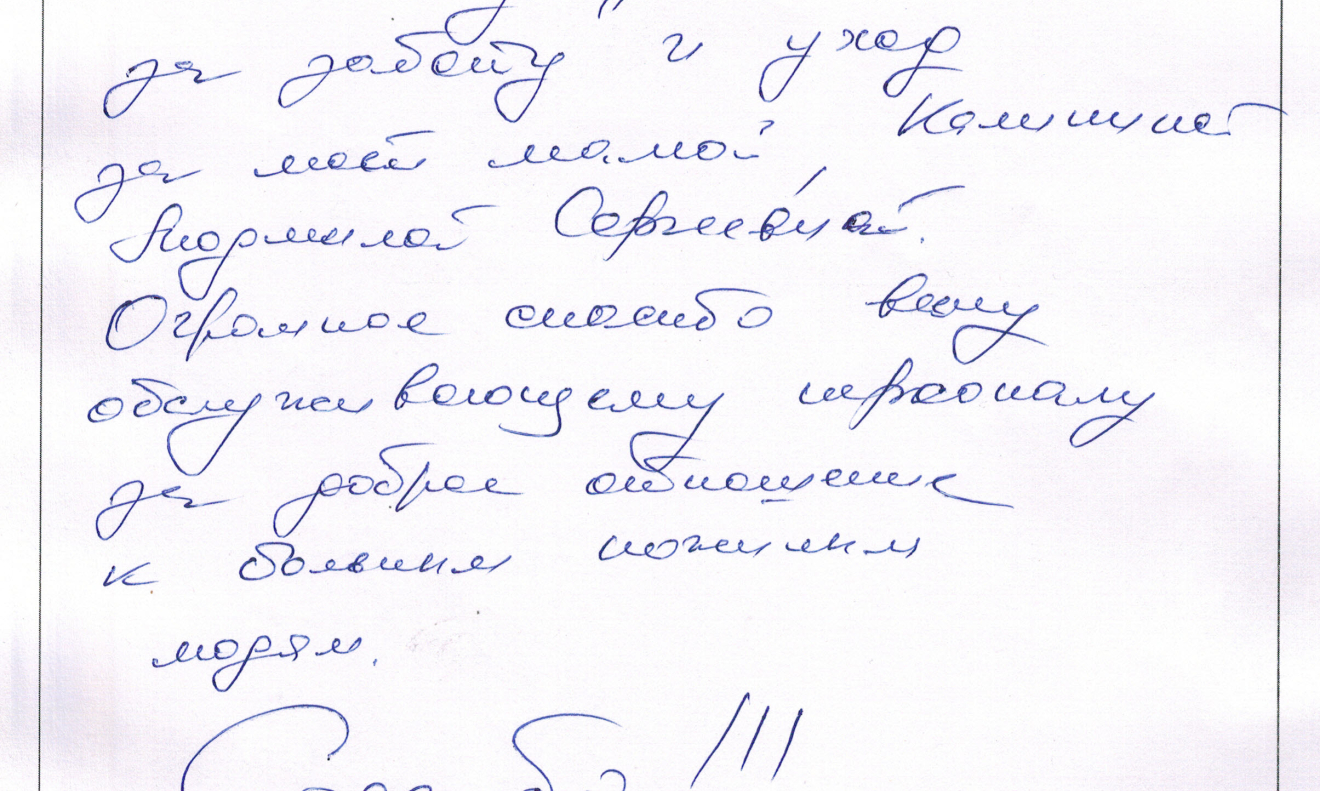 за заботу и уход
за моей мамой, Калининой
Людмилой Сергеевной.
Огромное спасибо всему
обслуживающему персоналу
за доброе отношение
к больным пожилым
людям.
Спасибо!!!